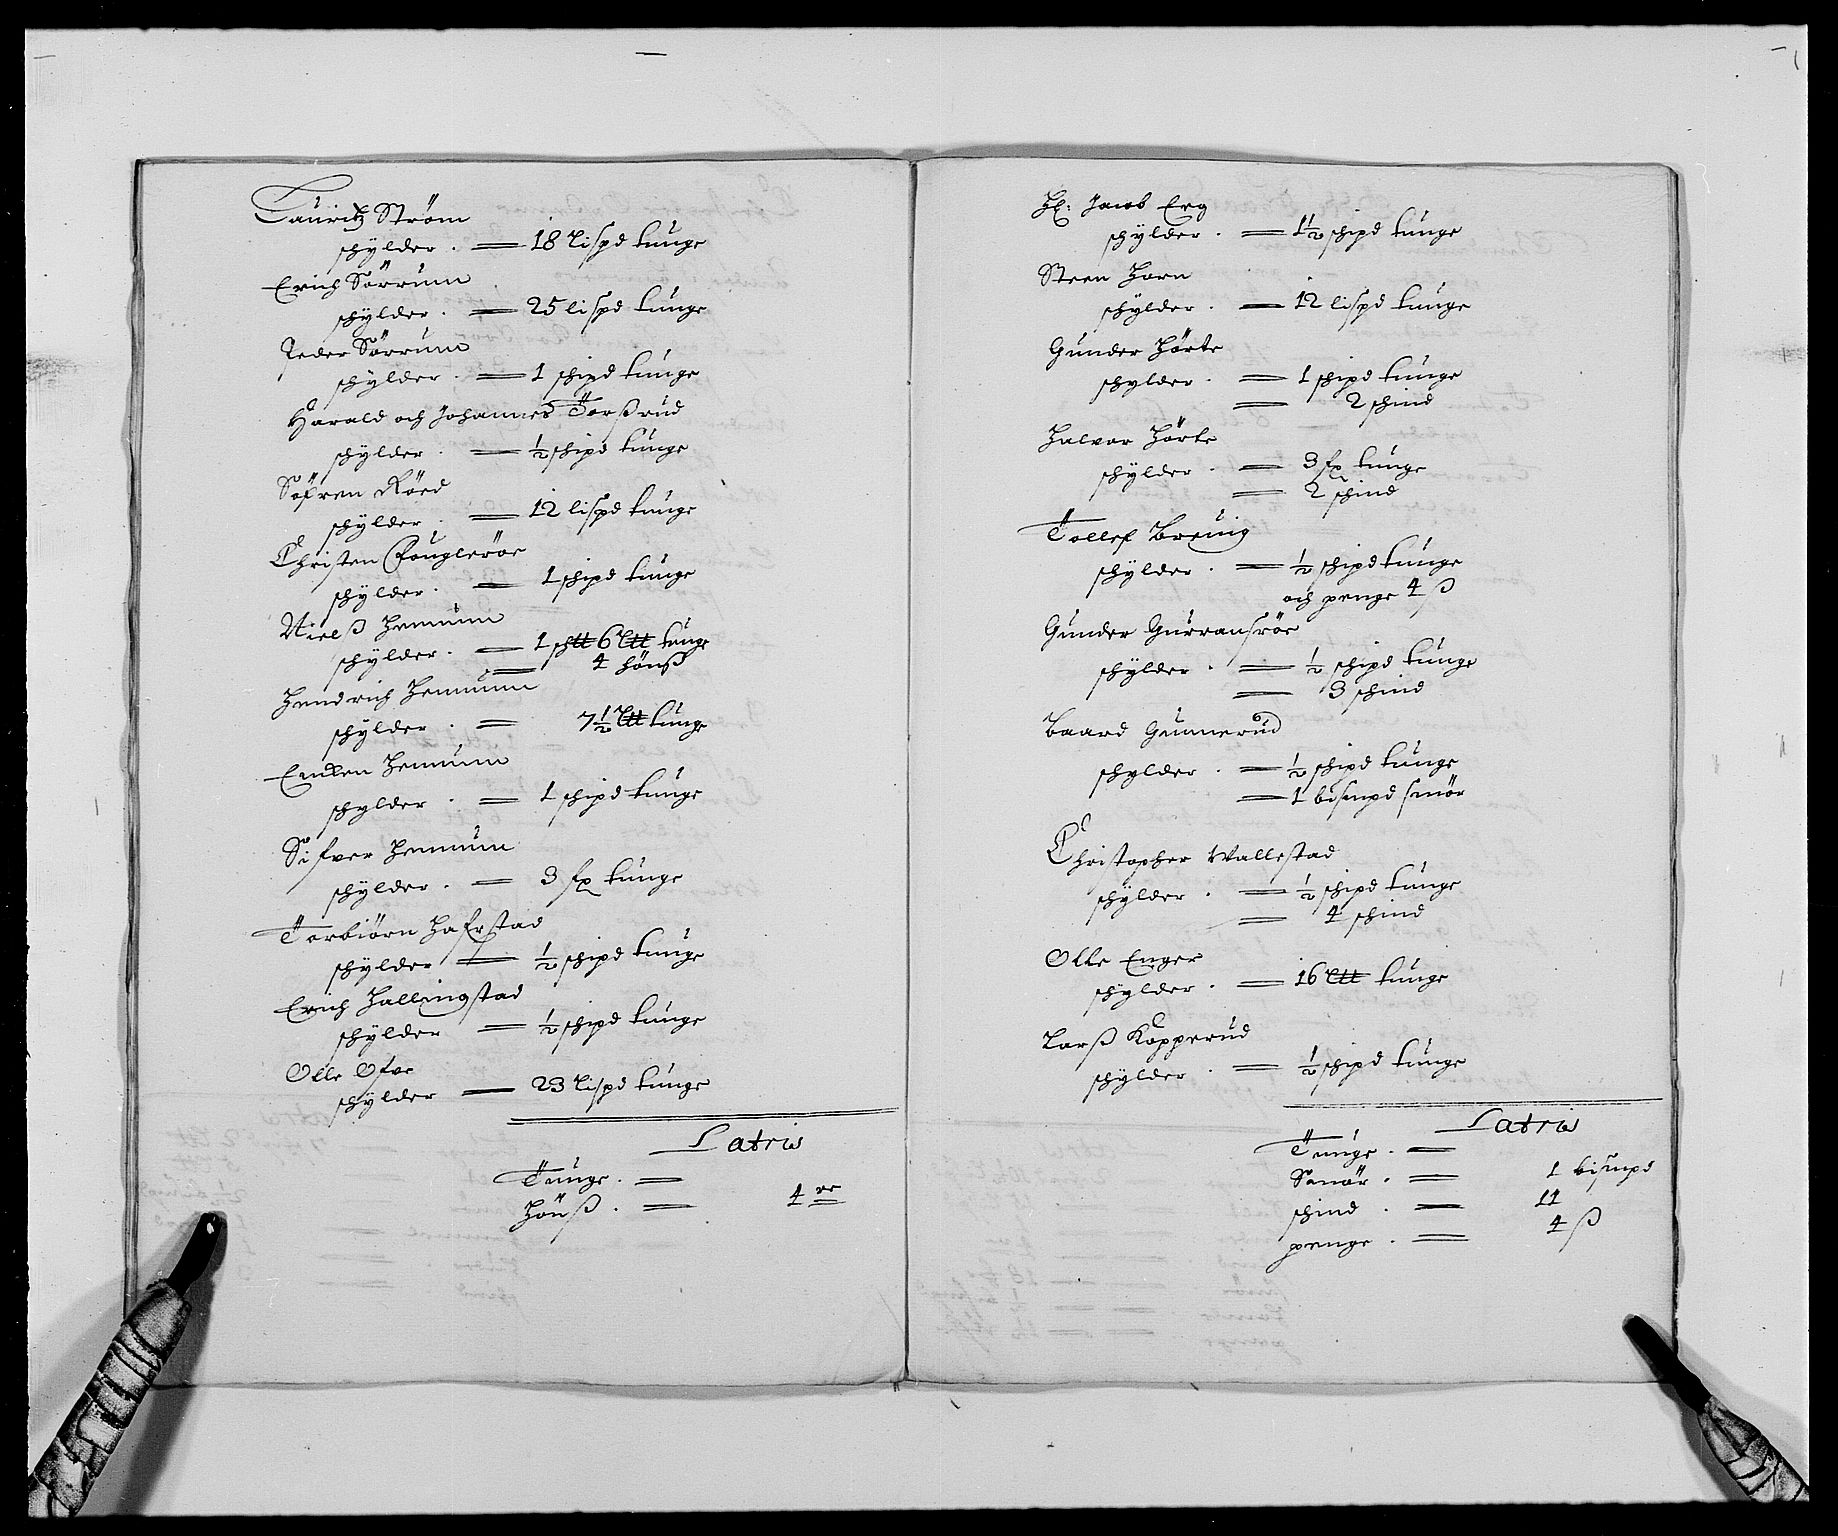 Lauritz Ström
schÿlder . — 18 lispd tunge
Erich Sörrum
schÿlder . — 25 lispd tunge
Peder Sörrum
schÿlder . — 1 schipd tunge
Harald och Johannes Torßrud
schÿlder . — ½ schipd tunge
Söfren Röed
schÿlder . — 12 lispd tunge
Christen Fougleröe
schÿlder . — 1 schipd tunge
Nielß Hemum
schÿlder . — 1 sch℔ 6 L℔ tunge
— 4 Hönß
Hendrich Hemum
schÿlder . — 7½ L℔ tunge
Hemum
schÿlder . — 1 schipd tunge
Sifver Hemum
schÿlder . — 3 fz tunge
Torbiörn Hafrstad
schÿlder — ½ schipd tunge
Erich Hallingstad
schÿlder — ½ schipd tunge
Olle Ofve
schÿlder — 23 lispd tunge
Latris
Tunge . —
Hönß . — 4 re
Hr: Jacob Erg
schÿlder . — 1½ schipd tunge
Steen Horn
schÿlder . — 12 lispd tunge
Gunder Hörte
schÿlder . — 1 schipd tunge
— 2 schind
Halvor Hörte
schÿlder . — 3 fz tunge
— 2 schind
Tollef Breuig
schÿlder . — ½ schipd tunge
och penge 4 ß
Gunder Gurransröe
schÿlder . — ½ schipd tunge
— 3 schind
Baard Gunnerud
schÿlder . — ½ schipd tunge
— 1 bismpd smör
Christopher Wallestad
schÿlder . — ½ schipd tunge
— 4 schind
Olle Enger
schÿlder . — 16 L℔ tunge
Larß Kopperud
schÿlder . — ½ schipd tunge
Latris
Tunge . —
Smör . — 1 bismpd
schind . — 11
penge . — 4 ß